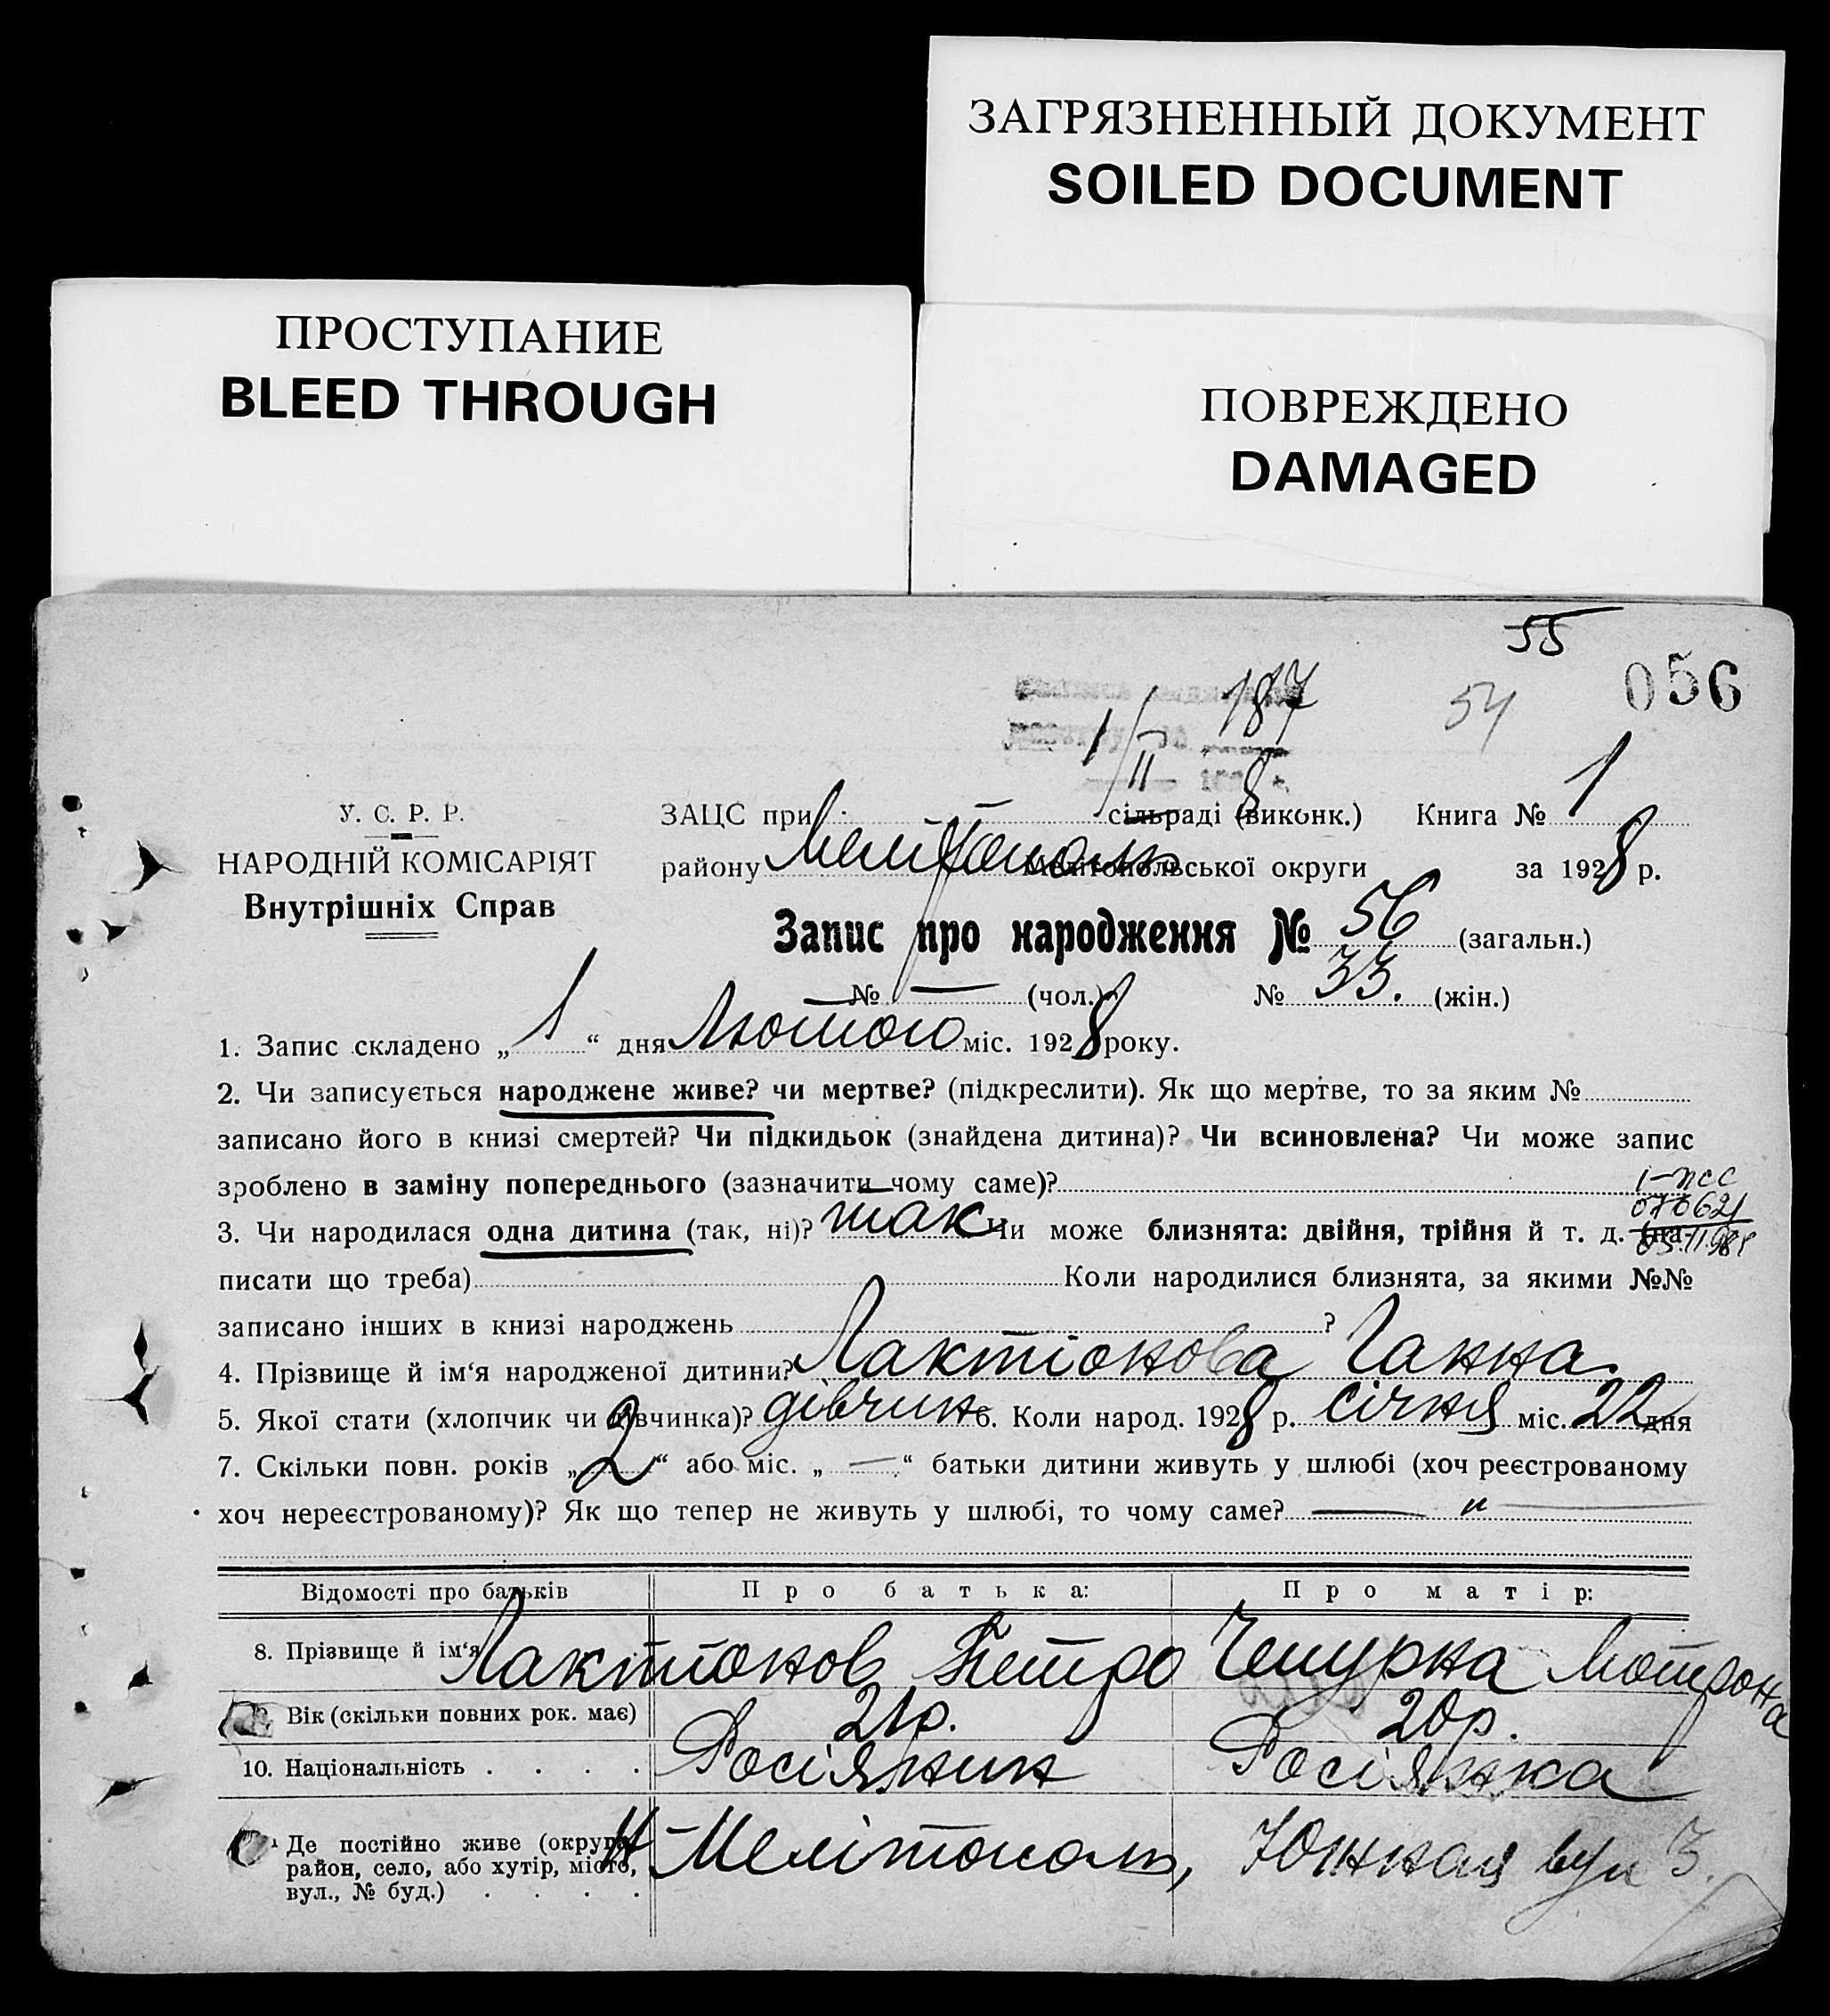 ЗАГРЯЗНЕННЫЙ ДОКУМЕНТ
SOILED DOCUMENT
ПРОСТУПАНИЕ
BLEED THROUGH
ПОВРЕЖДЕНО
DAMAGED
55
056
187
54
1/II 8
У. С. Р. Р.
НАРОДНІЙ КОМІСАРІЯТ
Внутрішніх Справ
ЗАЦС при сільраді (виконк.) Книга № 1
району Мелітополь Мелітопольської округи за 1928 р.
Запис про народження № 56 (загальн.)
№ — (чол.) № 33. (жін.)
1. Запис складено „ 1 “ дня Лютого міс. 1928 року.
2. Чи записується народжене живе? чи мертве? (підкреслити). Як що мертве, то за яким №
записано його в книзі смертей? Чи підкидьок (знайдена дитина)? Чи всиновлена? Чи може запис
зроблено в заміну попереднього (зазначити чому саме)?
1-ПСС
070621
3. Чи народилася одна дитина (так, ні)? так Чи може близнята: двійня, трійня й т. д. (на-
писати що треба) Коли народилися близнята, за якими №№
записано інших в книзі народжень ?
4. Прізвище й ім‘я народженої дитини? Лактіонова Ганна
5. Якої стати (хлопчик чи дівчинка)? дівчин 6. Коли народ. 1928 р. січня міс. 22 дня
7. Скільки повн. років „ 2 “ або міс. „ — “ батьки дитини живуть у шлюбі (хоч реєстрованому
хоч нереєстрованому)? Як що тепер не живуть у шлюбі, то чому саме? — „ —
Відомості про батьків Про батька: Про матір:
8. Прізвище й ім‘я Лактіонов Петро Чепурна Мотрона
Вік (скільки повних рок. має) 21р. 20р.
10. Національність . . . . Росіянин Росіянка
Де постійно живе (округа,
район, село, або хутір, місто,
вул., № буд.) . . . .
М-Мелітополь, Южная вул 3.